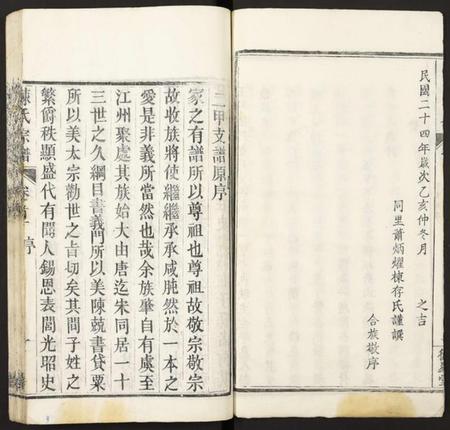 民國二十四年歲次乙亥仲冬月 之吉
同里蕭炳燿棟存氏謹譔
合族敬序
二甲支譜原序
家之有譜所以尊祖也尊祖故敬宗敬宗
故收族將使繼繼承承咸肫然於一本之
愛是非義所當然也哉余族肇自有虞至
江州聚處其族始大由唐迄宋同居一十
三世之久綱目書義門所以美陳兢書貸粟
所以美太宗勸世之旨切矣其間子姓之
繁爵秩顯盛代有聞人錫恩表閭光昭史
陳氏宗譜 卷首 序